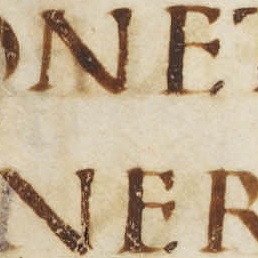 ONET
NER